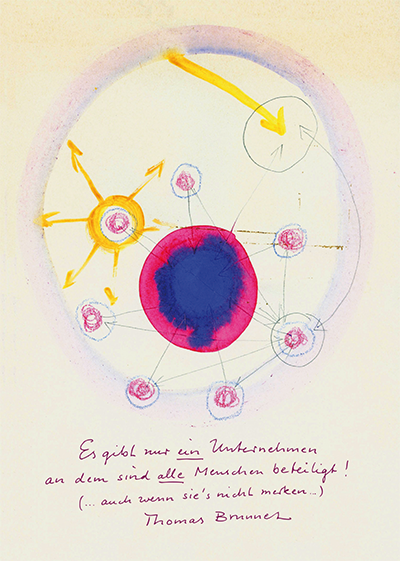 Es gibt nur ein Unternehmen
an dem sind alle Menschen beteiligt!
(... auch wenn sie's nicht merken...)
Thomas Brunner